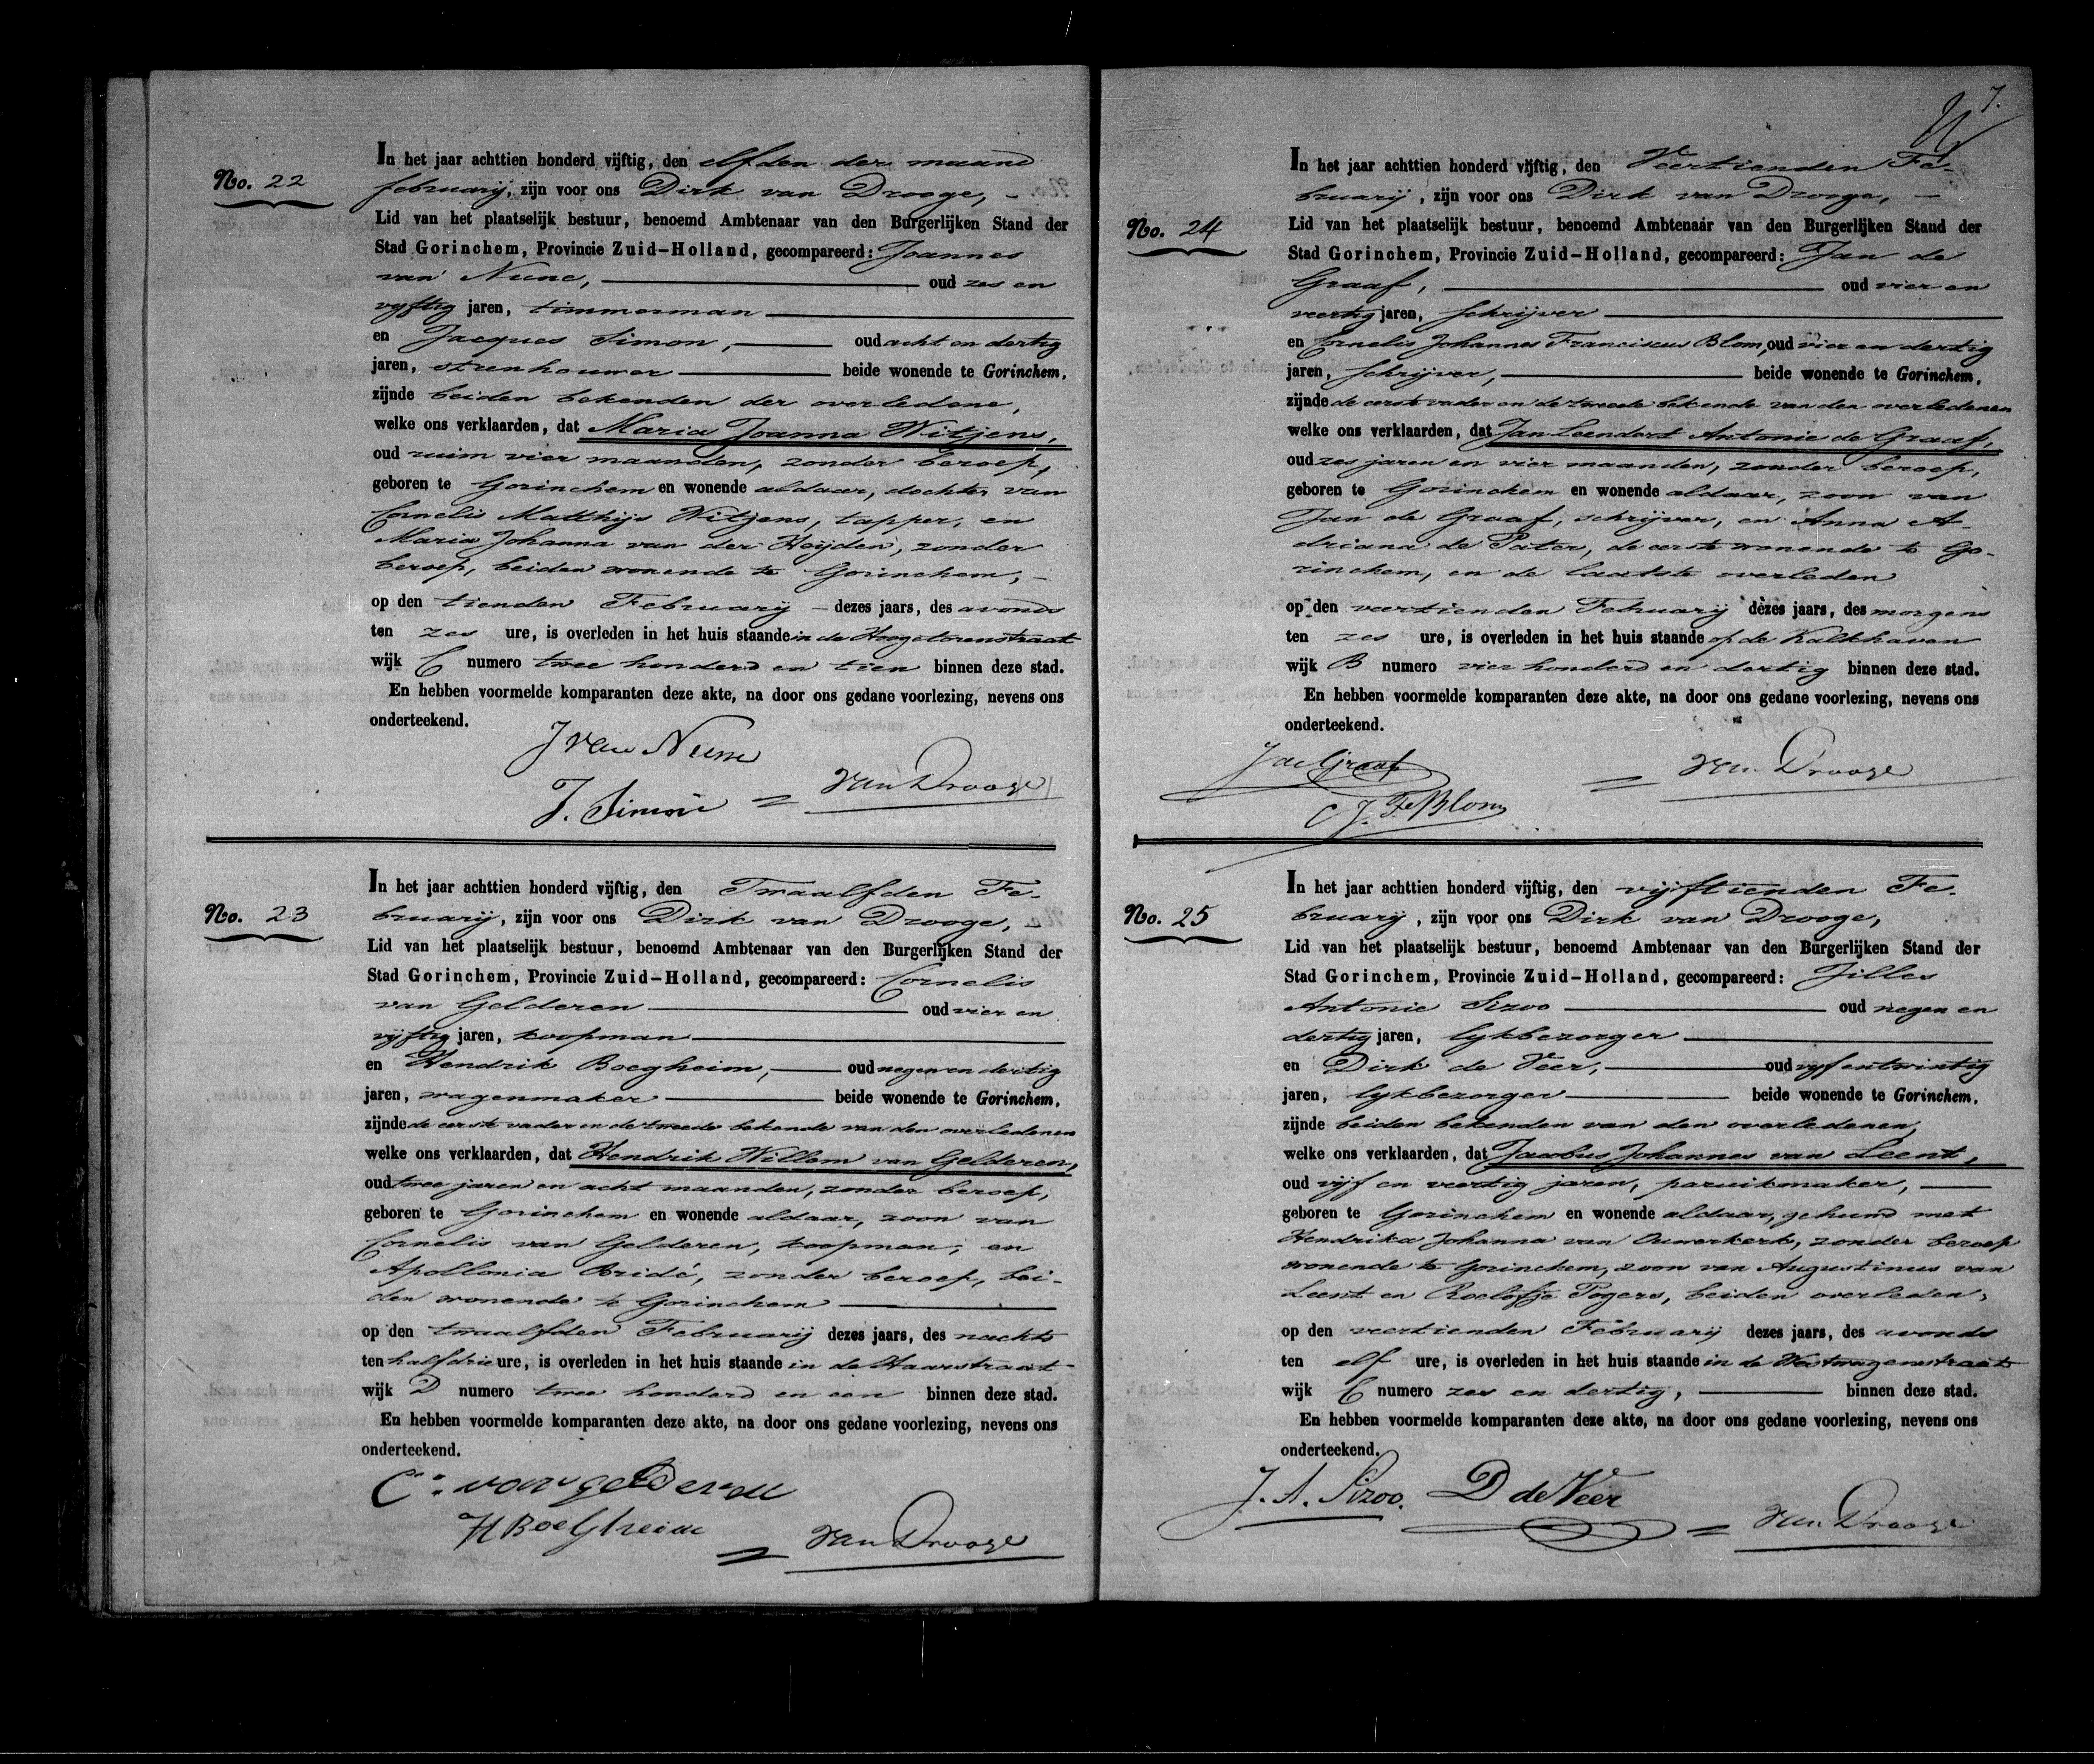 No. 22
In het jaar achttien honderd vijftig, den elfden der maand
februarij, zijn voor ons Dirk van Drooge,
Lid van het plaatselijk bestuur, benoemd Ambtenaar van den Burgerlijken Stand der
Stad Gorinchem, Provincie Zuid-Holland, gecompareerd: Joannes
van Nune, oud zes en
vyftig jaren, timmerman
en Jacques Simon, oud acht en dertig
jaren, steenhouwer beide wonende te Gorinchem.
zijnde beiden bekenden der overledene,
welke ons verklaarden, dat Maria Joanna Witjens,
oud ruim vier maanden, zonder beroep,
geboren te Gorinchem en wonende aldaar, dochter van
Cornelis Matthijs Witjens, tapper, en
Maria Johanna van der Heyden, zonder
beroep, beiden wonende te Gorinchem,
op den tienden Februarij dezes jaars, des avonds
ten zes ure, is overleden in het huis staande in de Hoogetorenstraat
wijk C numero twee honderd en tien binnen deze stad.
En hebben voormelde komparanten deze akte, na door ons gedane voorlezing, nevens ons
onderteekend.
J van Nune
J. Simon van Drooge
No. 23
In het jaar achttien honderd vijftig, den Twaalfden Fe-
bruarij, zijn voor ons Dirk van Drooge,
Lid van het plaatselijk bestuur, benoemd Ambtenaar van den Burgerlijken Stand der
Stad Gorinchem, Provincie Zuid-Holland, gecompareerd: Cornelis
van Gelderen oud vier en
vyftig jaren, koopman
en Hendrik Boegheim, oud negen en dertig
jaren, wagenmaker beide wonende te Gorinchem.
zijnde de eerste vader en de tweede bekende van den overledenen
welke ons verklaarden, dat Hendrik Willem van Gelderen,
oud twee jaren en acht maanden, zonder beroep,
geboren te Gorinchem en wonende aldaar, zoon van
Cornelis van Gelderen, koopman, en
Apollonia Bridé, zonder beroep, bei-
den wonende te Gorinchem
op den twaalfden Februarij dezes jaars, des nachts
ten half drie ure, is overleden in het huis staande in de Haarstraat
wijk D numero twee honderd en een binnen deze stad.
En hebben voormelde komparanten deze akte, na door ons gedane voorlezing, nevens ons
onderteekend.
Cs. van gelderen
H Boegheim
van Drooge
7.
No. 24
In het jaar achttien honderd vijftig, den Veertienden Fe-
bruarij, zijn voor ons Dirk van Drooge,
Lid van het plaatselijk bestuur, benoemd Ambtenaar van den Burgerlijken Stand der
Stad Gorinchem, Provincie Zuid-Holland, gecompareerd: Jan de
Graaf, oud vier en
veertig jaren, schrijver
en Cornelis Johannes Franciscus Blom, oud vier en dertig
jaren, schrijver, beide wonende te Gorinchem.
zijnde de eerste vader en de tweede bekende van den overledenen
welke ons verklaarden, dat Jan Leendert Antonie de Graaf,
oud zes jaren en vier maanden, zonder beroep,
geboren te Gorinchem en wonende aldaar, zoon van
Jan de Graaf, schrijver, en Anna A-
driana de Pater, de eerste wonende te Go-
rinchem, en de laatste overleden
op den veertienden Februarij dezes jaars, des morgens
ten zes ure, is overleden in het huis staande op de Kalkhaven
wijk B numero vier honderd en dertig binnen deze stad.
En hebben voormelde komparanten deze akte, na door ons gedane voorlezing, nevens ons
onderteekend.
J de Graaf van Drooge
C J. F. Blom
No. 25
In het jaar achttien honderd vijftig, den vijftienden Fe-
bruarij, zijn voor ons Dirk van Drooge,
Lid van het plaatselijk bestuur, benoemd Ambtenaar van den Burgerlijken Stand der
Stad Gorinchem, Provincie Zuid-Holland, gecompareerd: Jilles
Antonie Sizoo oud negen en
dertig jaren, lykbezorger
en Dirk de Veer, oud vyf en twintig
jaren, lykbezorger beide wonende te Gorinchem.
zijnde beiden bekenden van den overledenen,
welke ons verklaarden, dat Jacobus Johannes van Leent,
oud vijf en veertig jaren, paruikmaker,
geboren te Gorinchem en wonende aldaar, gehuwd met
Hendrika Johanna van Ouwerkerk, zonder beroep
wonende te Gorinchem, zoon van Augustinus van
Leent en Roelofje Pogers, beiden overleden,
op den veertienden Februarij dezes jaars, des avonds
ten elf ure, is overleden in het huis staande in de Westwagenstraat
wijk C numero zes en dertig, binnen deze stad.
En hebben voormelde komparanten deze akte, na door ons gedane voorlezing, nevens ons
onderteekend.
J. A. Sizoo. D de Veer
van Drooge